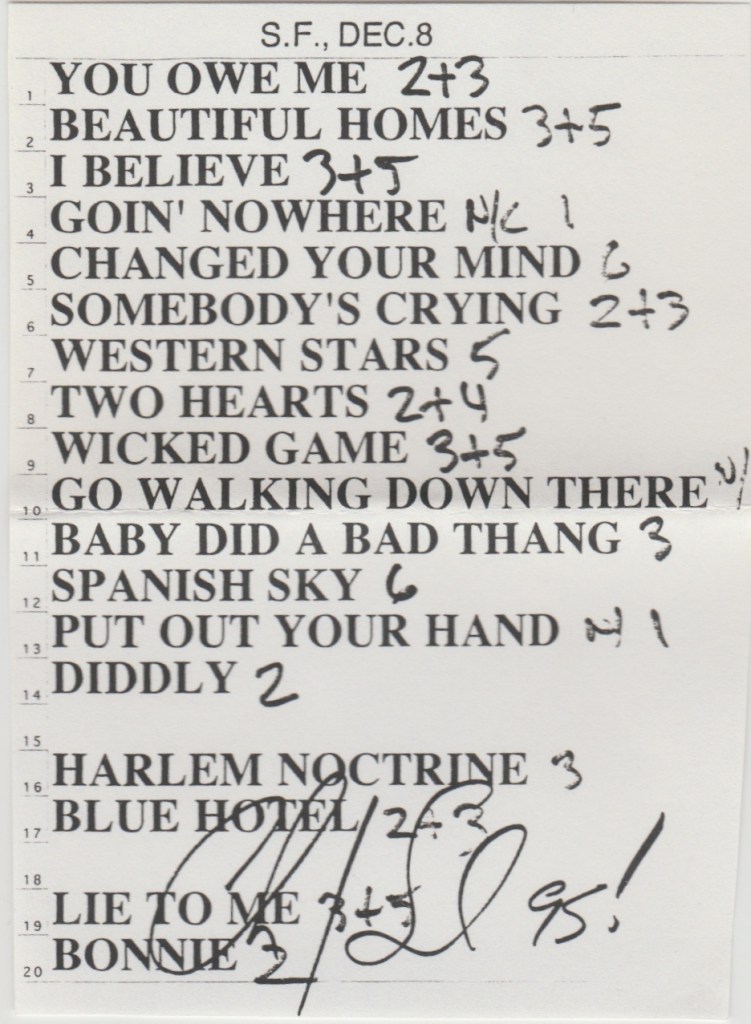 S.F., DEC.8
1 YOU OWE ME 2+3
2 BEAUTIFUL HOMES 3+5
3 I BELIEVE 3+5
4 GOIN' NOWHERE N/C 1
5 CHANGED YOUR MIND 6
6 SOMEBODY'S CRYING 2+3
7 WESTERN STARS 5
8 TWO HEARTS 2+4
9 WICKED GAME 3+5
10 GO WALKING DOWN THERE
11 BABY DID A BAD THANG 3
12 SPANISH SKY 6
13 PUT OUT YOUR HAND N 1
14 DIDDLY 2
15
16 HARLEM NOCTRINE 3
17 BLUE HOTEL 2+3
18
19 LIE TO ME 3+5
95!
20 BONNIE 3